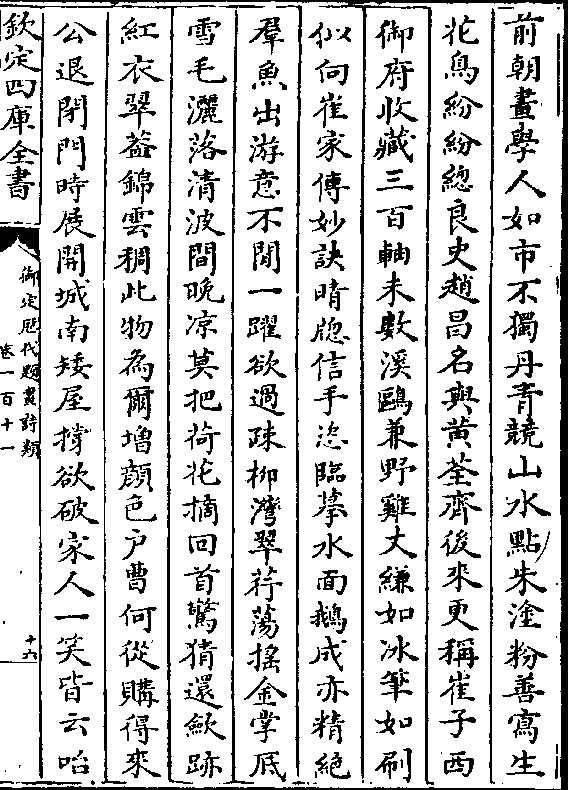 前朝畫學人如市不獨丹青競山水點朱塗粉善寫生
花鳥紛紛總良史趙昌名與黄荃齊後來更稱崔子西
御府收藏三百軸未數溪鷗兼野雞丈縑如冰筆如刷
似向崔家傳妙訣晴牕信手恣臨摹水面鵝成亦精絶
羣魚出游意不閒一躍欲過疎柳灣翠荇蕩搖金掌底
雪毛灑落清波間晚凉莫把荷花摘回首驚猜還歛跡
紅衣翠葢錦雲稠此物為爾增顔色户曹何從購得來
公退閉門時展開城南矮屋撐欲破家人一笑皆云咍
欽定四庫全書
御定歴代題畫詩類
卷一百十一
十六